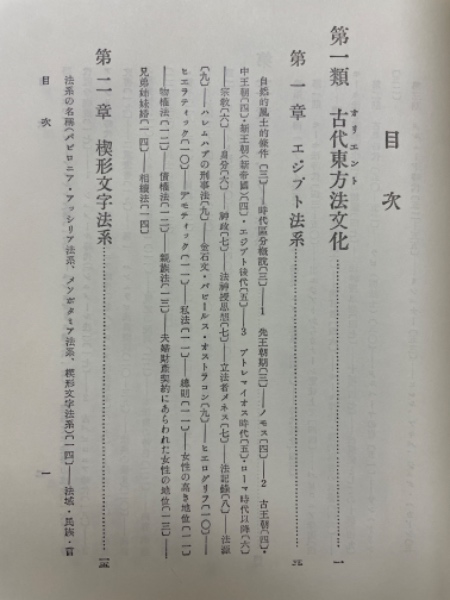 目次
第一類 古代東方法文化……一
オリエント
第一章 エジプト法系……
自然的風土的條件〔三〕――時代區分概説〔三〕――1 先王朝期〔三〕――ノモス〔四〕――2 古王朝〔四〕・
中王朝〔四〕・新王朝(新帝國)〔四〕・エジプト後代〔五〕――3 プトレマイオス時代〔五〕・ローマ時代以降〔六〕
――宗教〔六〕――身分〔六〕――神政〔七〕――法神授思想〔七〕――立法者メネス〔七〕――法記録〔八〕――法源
〔九〕――ハレムハブの刑事法〔九〕――金石文・パピールス・オストラコン〔九〕――ヒエログリフ〔一〇〕――
ヒエラティック〔一〇〕――デモティック〔一一〕――私法〔一一〕――總則〔一一〕――女性の高き地位〔一一〕
――物權法〔一二〕――債權法〔一二〕――親族法〔一三〕――夫婦財産契約にあらわれた女性の地位〔一三〕――
兄弟姉妹婚〔一四〕――相續法〔一四〕
第二章 楔形文字法系……
法系の名稱(バビロニア・アッシリア法系、メソポタミア法系、楔形文字法系)〔一四〕――法域・民族・言
目次
一